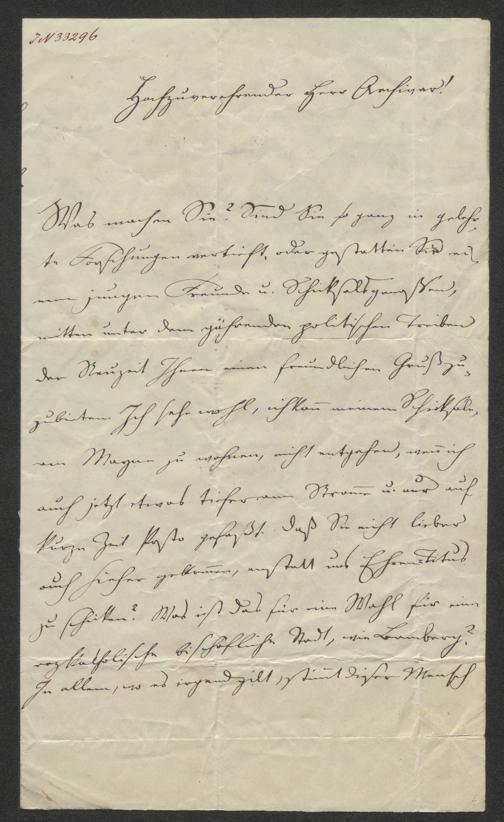 IN 33296
Hochzuverehrender Herr Archivar!
Was machen Sie? Sind Sie so ganz in gelehr-
te Forschungen vertieft, oder gestatten Sie ei-
nem jungen Freunde u. Schicksalsgenossen,
mitten unter dem gährenden politischen Treiben
der Neuzeit Ihnen einen freundlichen Gruß zu-
zubieten? Ich sehe wohl, ich kann meinem Schicksale,
am Mayne zu wohnen, nicht entgehen, wenn ich
auch jetzt etwas tiefer am Strome u. nur auf
kurze Zeit Posto gefaßt. Daß Sie nicht lieber
auch hieher gekommen, anstatt uns Ehren
zu schicken? Was ist das für eine Wahl für eine
erzkatholische bischöfliche Stadt, wie Bamberg?
In allem, wo es irgend gilt, stimmt dieser Mensch